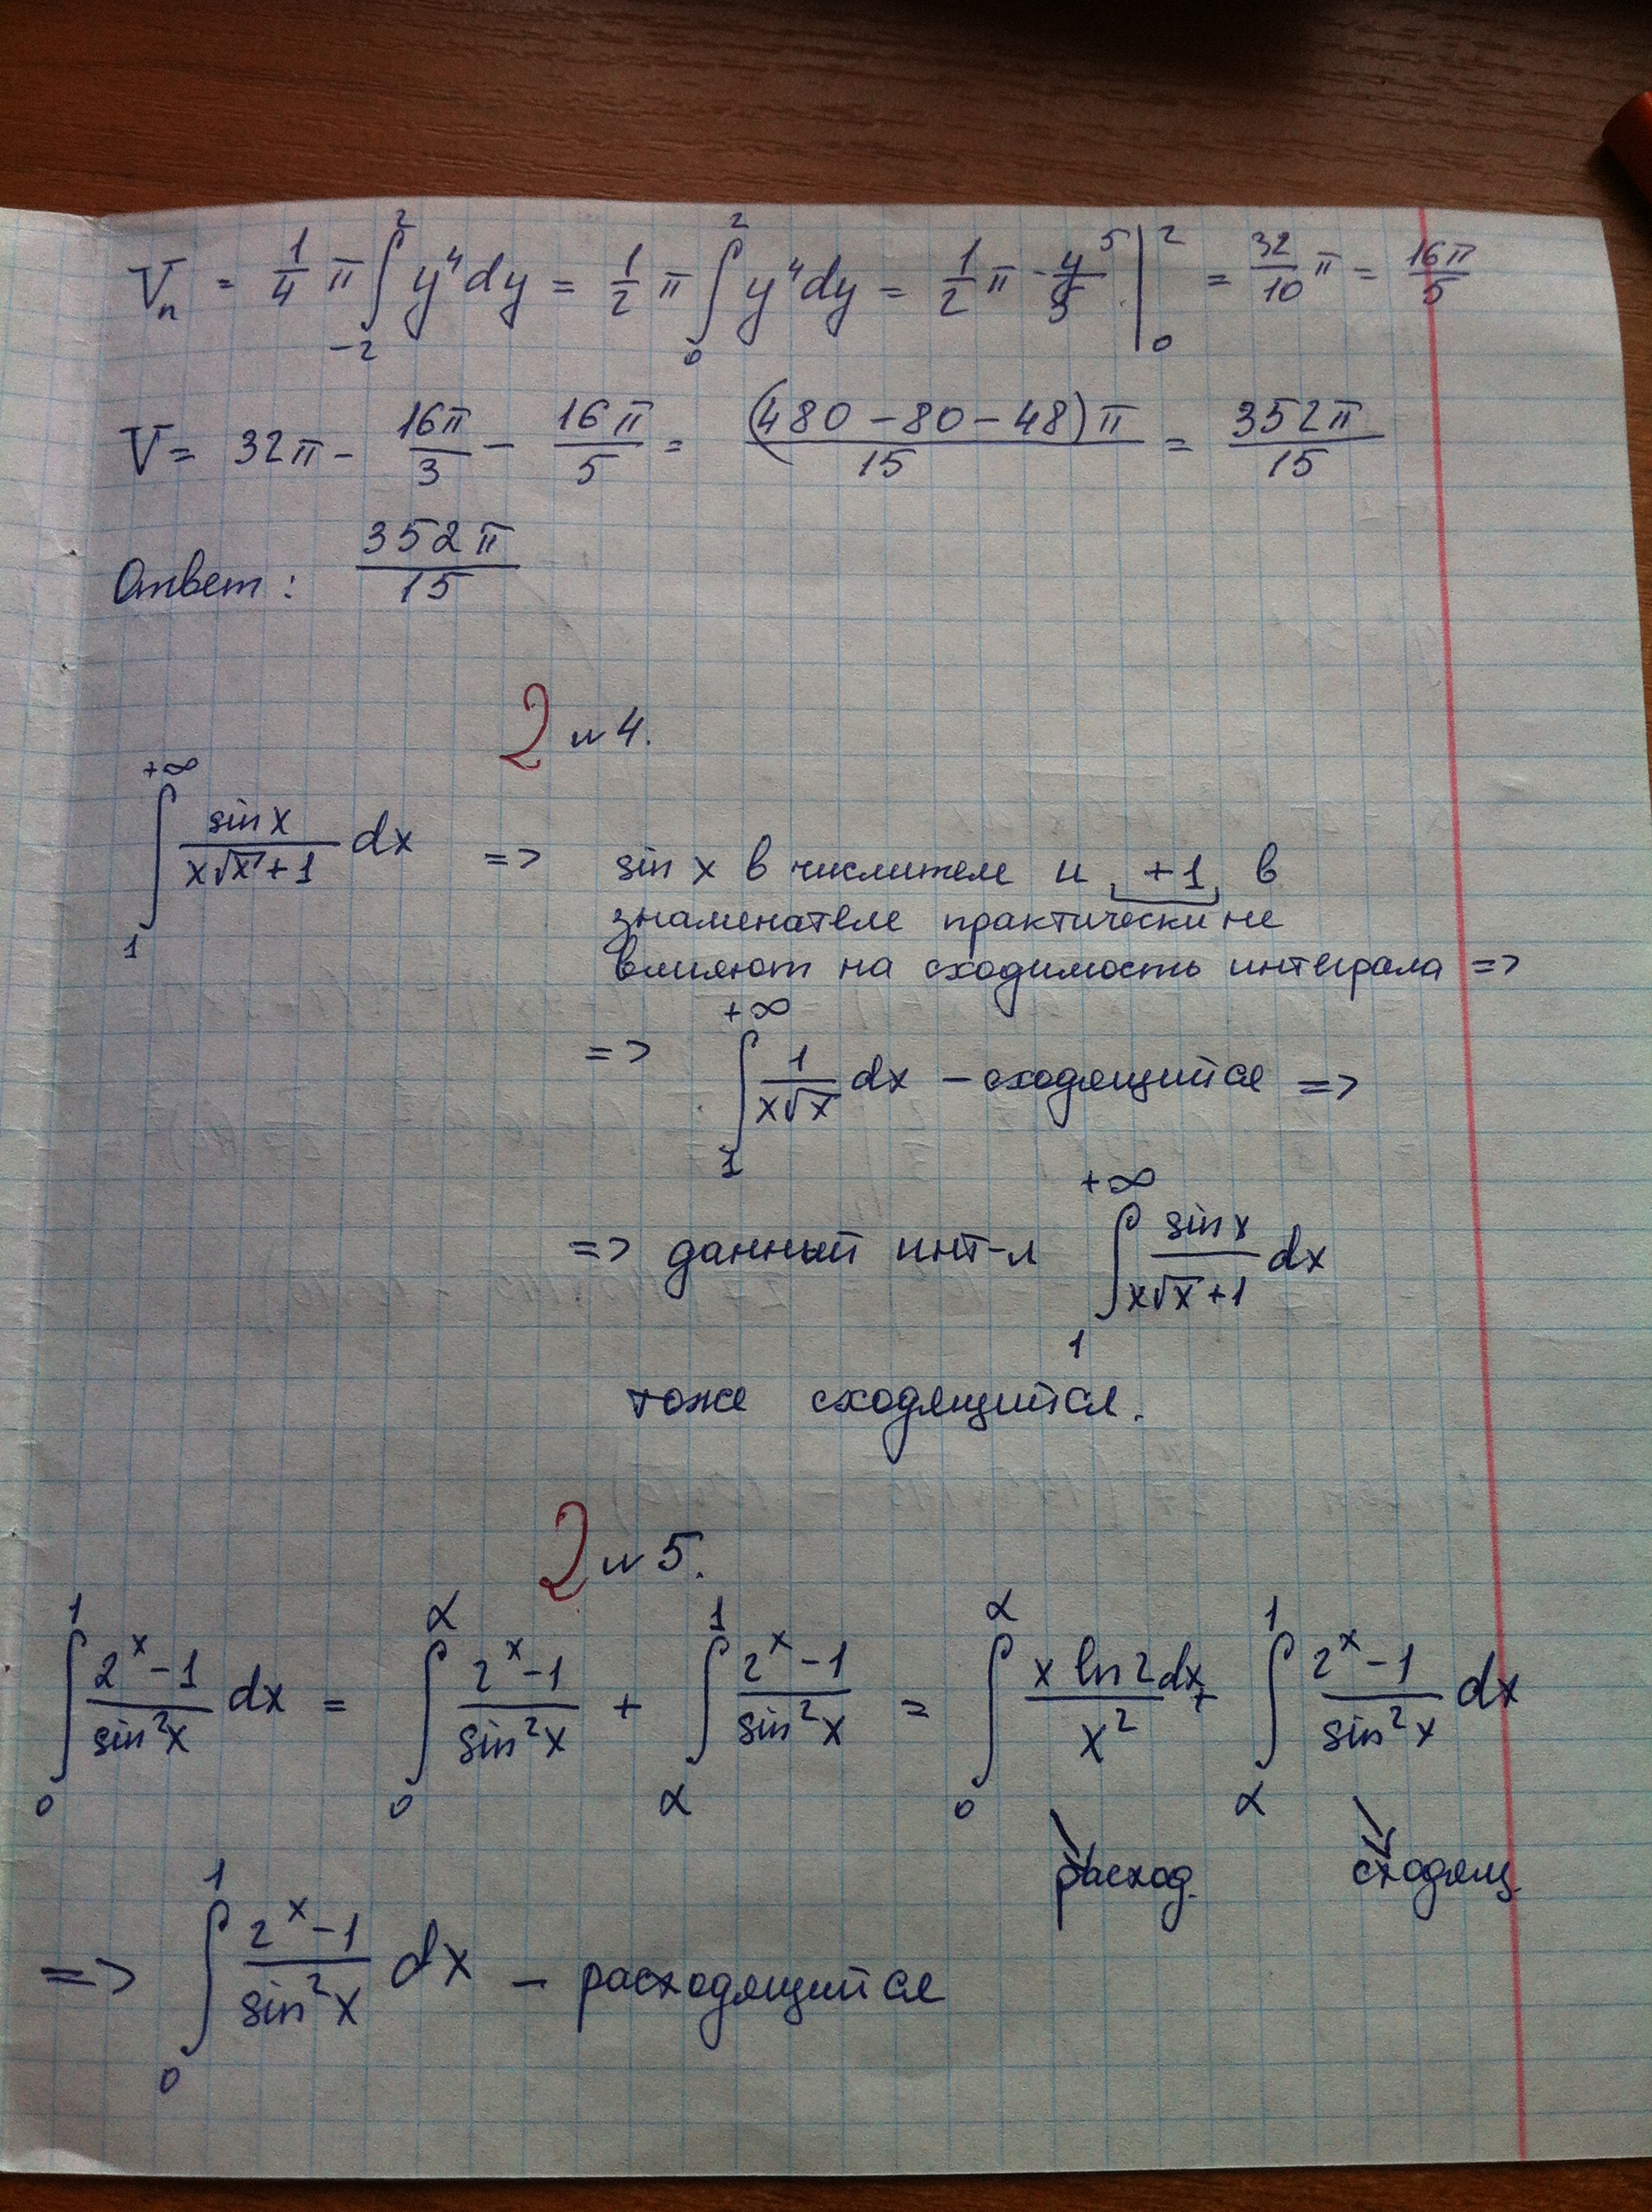 Vₙ = 1/4 π ∫₋₂² y⁴dy = 1/2 π ∫₀² y⁴dy = 1/2 π · y⁵/5 |₀² = 32/10 π = 16π/5
V = 32π - 16π/3 - 16π/5 = (480 - 80 - 48)π/15 = 352π/15
Ответ: 352π/15
2 №4.
∫₁^{+∞} sin x/(x√x + 1) dx => sin x в числителе и +1 в
знаменателе практически не
влияют на сходимость интеграла =>
=> ∫₁^{+∞} 1/(x√x) dx - сходящийся =>
=> данный инт-л ∫₁^{+∞} sin x/(x√x + 1) dx
тоже сходящийся.
2 №5.
∫₀¹ (2ˣ-1)/sin²x dx = ∫₀^α (2ˣ-1)/sin²x + ∫_α¹ (2ˣ-1)/sin²x = ∫₀^α x ln2dx/x² + ∫_α¹ (2ˣ-1)/sin²x dx
расход. сходящ.
=> ∫₀¹ (2ˣ-1)/sin²x dx - расходящийся